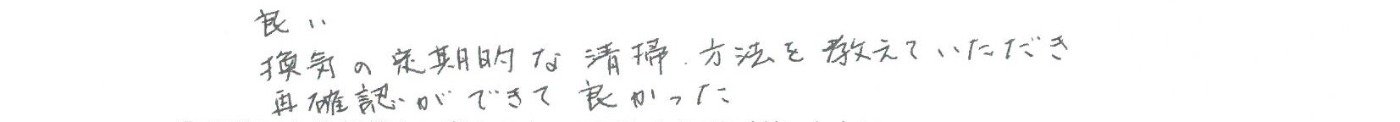 良い
換気の定期的な清掃.方法を教えていただき
再確認ができて良かった